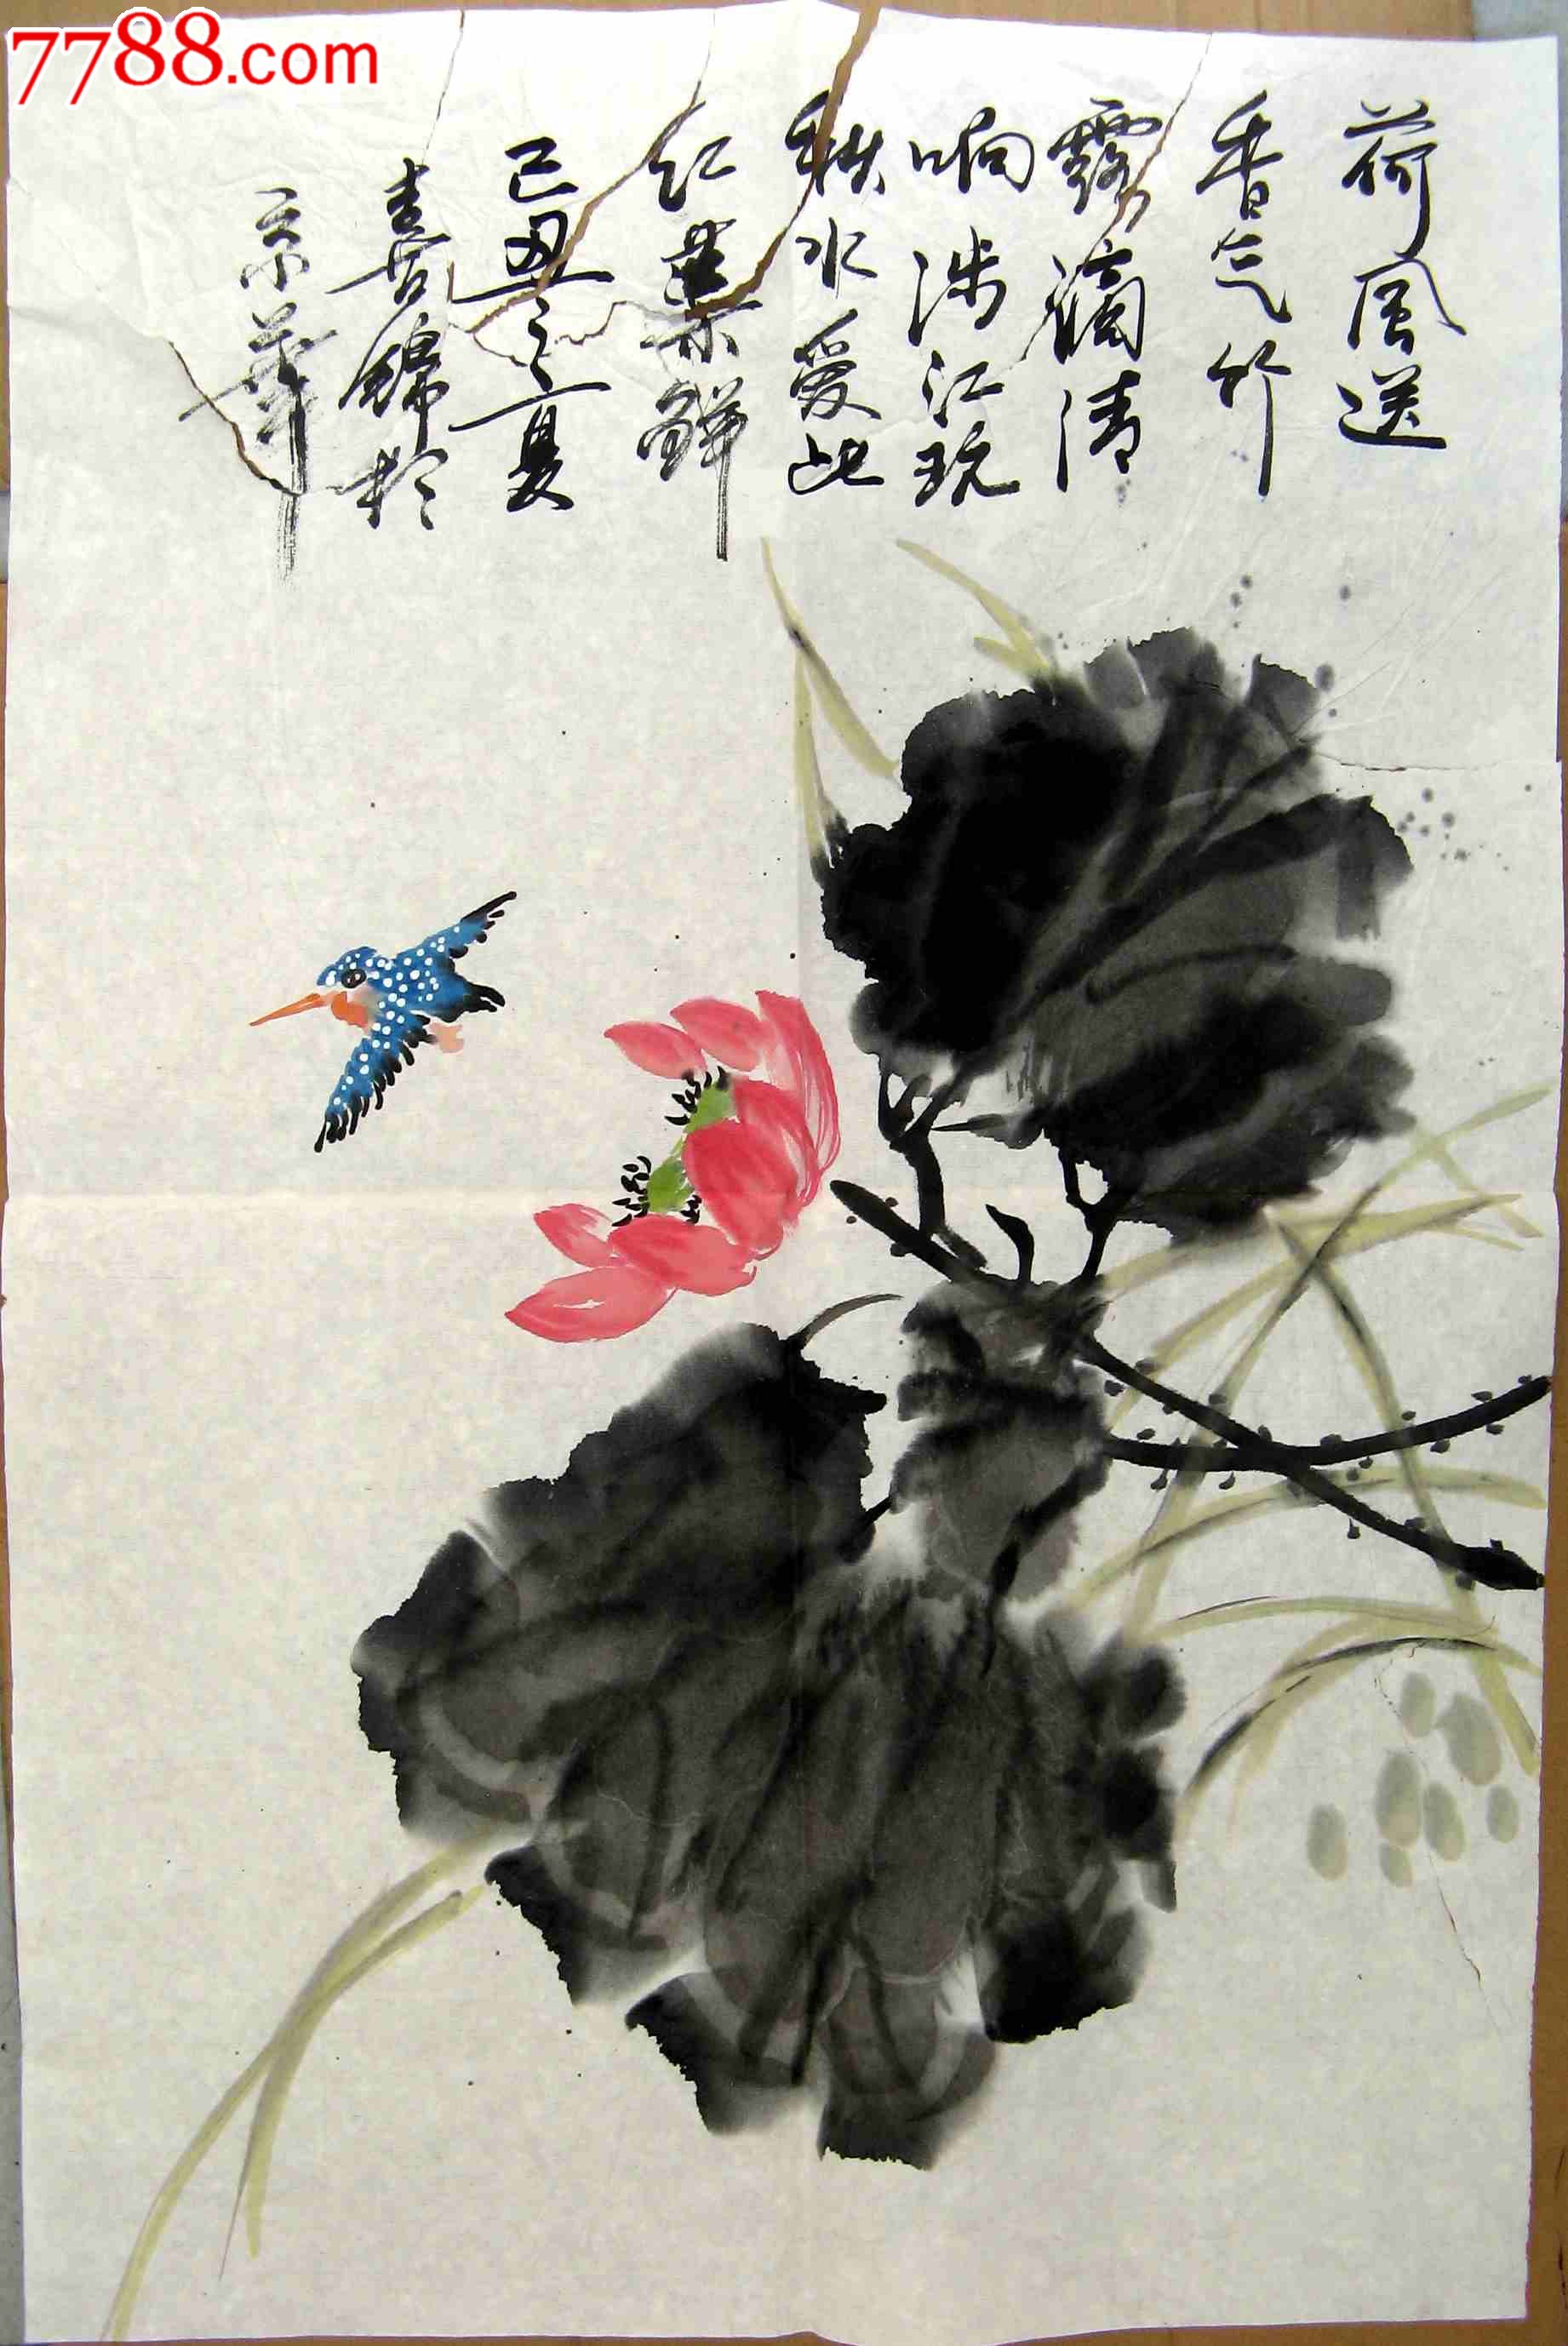 7788.com
荷风送
香气竹
露滴清
响涉江玩
秋水爱此
红蕖鲜
己丑之夏
喜锦於
京华